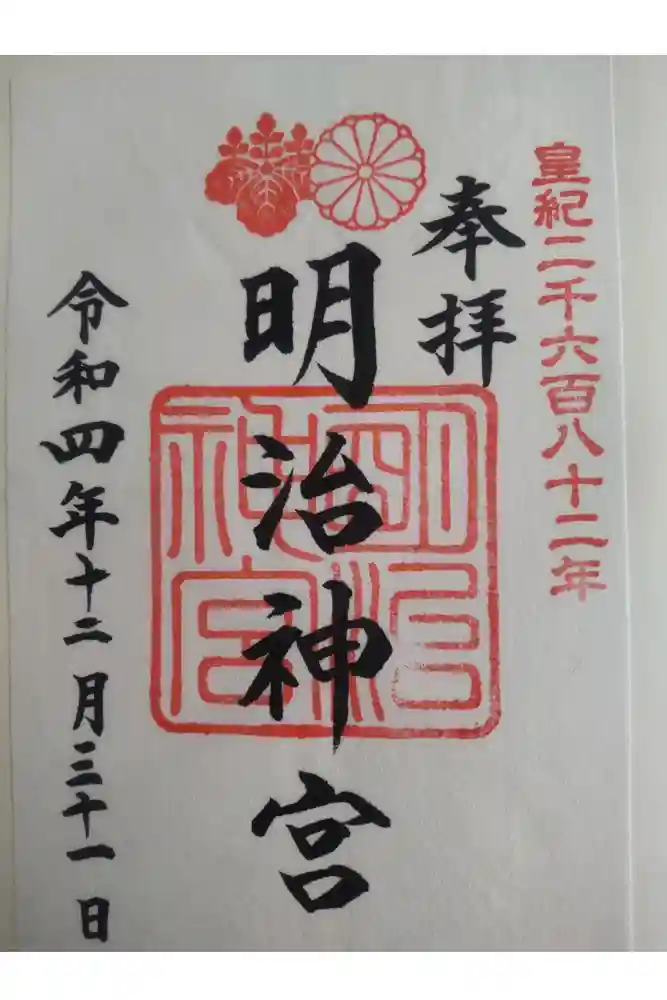 皇紀二千六百八十二年
奉拝
明治神宮
明治神宮
令和四年十二月三十一日